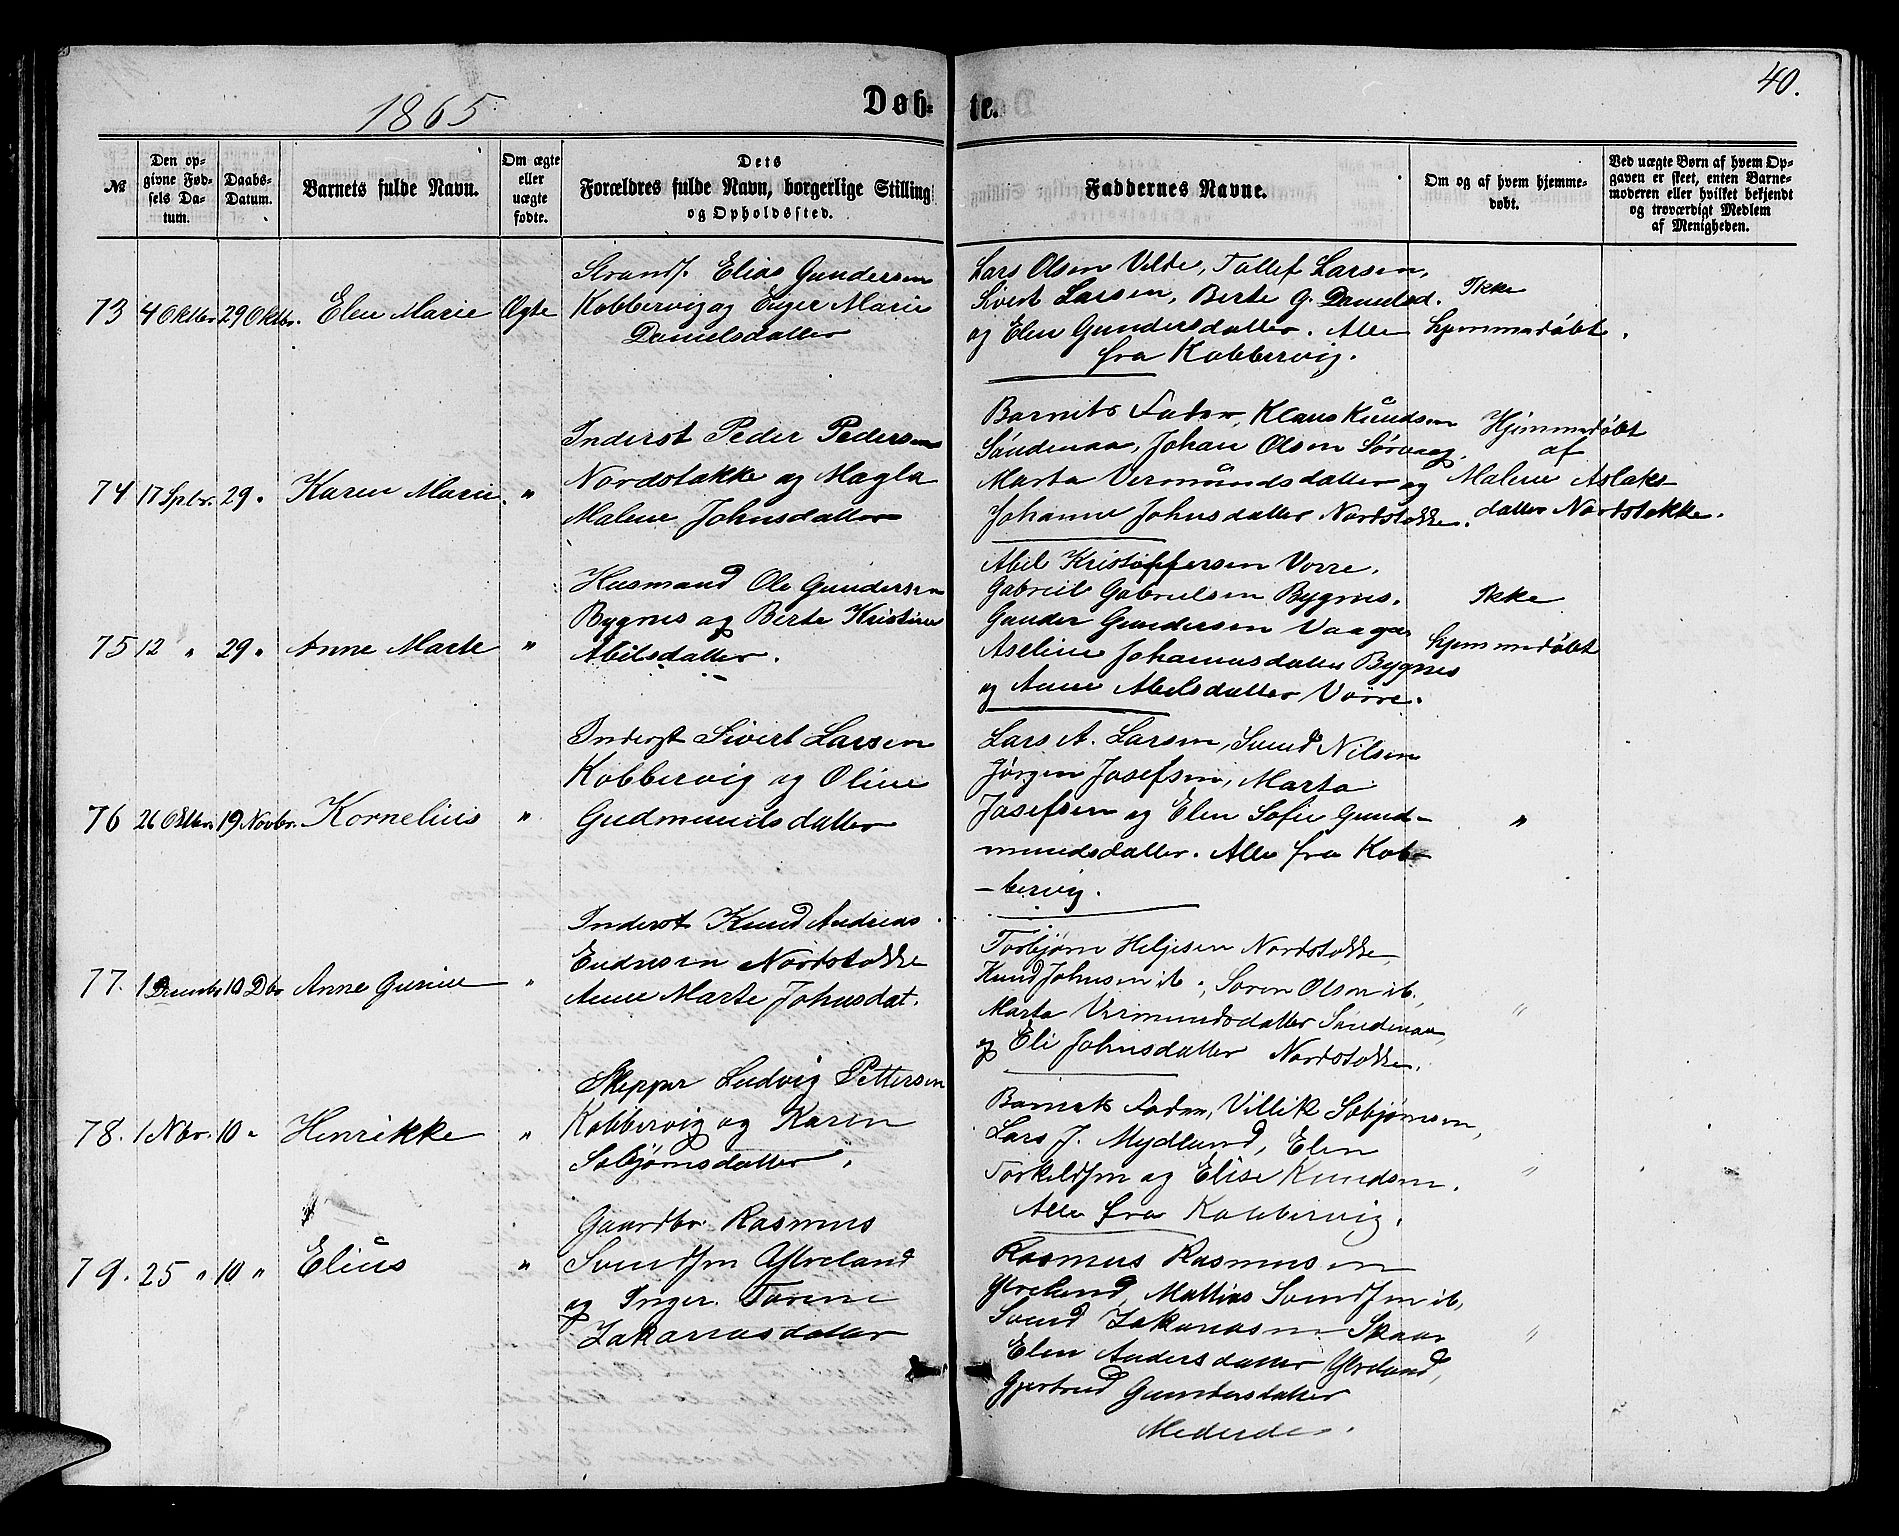 40.
1865
Døb- te.
№
Den op-
givne Fød-
sels Da-
tum.
Daabs-
Datum.
Barnets fulde Navn.
Om ægte
eller
uægte
fødte.
Dets
Forældres fulde Navn, borgerlige Stilling
og Opholdssted.
Faddernes Navne.
Om og af hvem hjemme-
døbt.
Ved uægte Børn af hvem Op-
gaven er skeet, enten Barne-
moderen eller hvilket bekjendt
og troværdigt Medlem
af Menigheden.
73 4 Oktbr. 29 Oktbr. Elen Marie Ægte
Strands. Elias Gundersen
Kobbervig og Inger Marie
Danielsdatter
Lars Olsen Velde, Tollef Larsen,
Sivert Larsen, Berte G. Danielsd.
og Elen Gundersdatter. Alle
fra Kobbervig.
Ikke
hjemmedøbt.
74 17 Sptbr. 29 " Karen Marie "
Inderst Peder Pedersen
Nordstokke og Magla
Malene Johnsdatter
Barnets Fader, Klaus Knudsen
Søndenaa, Johan Olsen
Marta Vermundsdatter og
Johanne Johnsdatter Nordstokke.
Hjemmedøbt
af
Malene Aslaks-
datter Nordstokke.
75 12 " 29 " Anne Marte "
Husmand Ole Gundersen
Bygnes og Berte Kristine
Abelsdatter.
Abel Kristoffersen Vorre,
Gabriel Gabrielsen Bygnes.
Gunder Gundersen Vaage
Aseline Johannesdatter Bygnes
og Anne Abelsdatter Vorre.
Ikke
hjemmedøbt
76 26 Oktbr. 19 Novbr. Kornelius "
Inderst Sivert Larsen
Kobbervig og Oline
Gudmundsdatter
Lars A. Larsen, Svend Nilsen
Jørgen Josefsen, Marta
Josefsen og Elen Sofie Gund-
mundsdatter. Alle fra Kob-
-bervig.
"
77. 1 Decembr 10 Dbr Anne Gurine "
Inderst Knud Andreas
Endresen Nordstokke
Anne Marte Johnsdat.
Torbjørn Heljesen Nordstokke,
Knud Johnsen ib., Søren Olsen ib.,
Marta Vermundsdatter Søndenaa,
og Eli Johnsdatter Nordstokke.
"
78. 1 Nbr. 10 " Henrikke "
Skepper Ludvig Pettersen
Kobbervig og Karen
Sebjørnsdatter.
Barnets Fader, Villik Sebjørnsen,
Lars J. Mydland, Elen
Torkeldsen og Elise Knudsen.
Alle fra Kobbervig.
"
79. 25 " 10 " Elius "
Gaardbr. Rasmus
Svendsen Ytreland
og Inger Torine
Zakariasdatter
Rasmus Rasmussen
Ytreland, Mattias Svendsen ib,
Svend Zakariasen Skaar
Elen Andersdatter Ytreland,
Gjertrud Gundersdatter
"